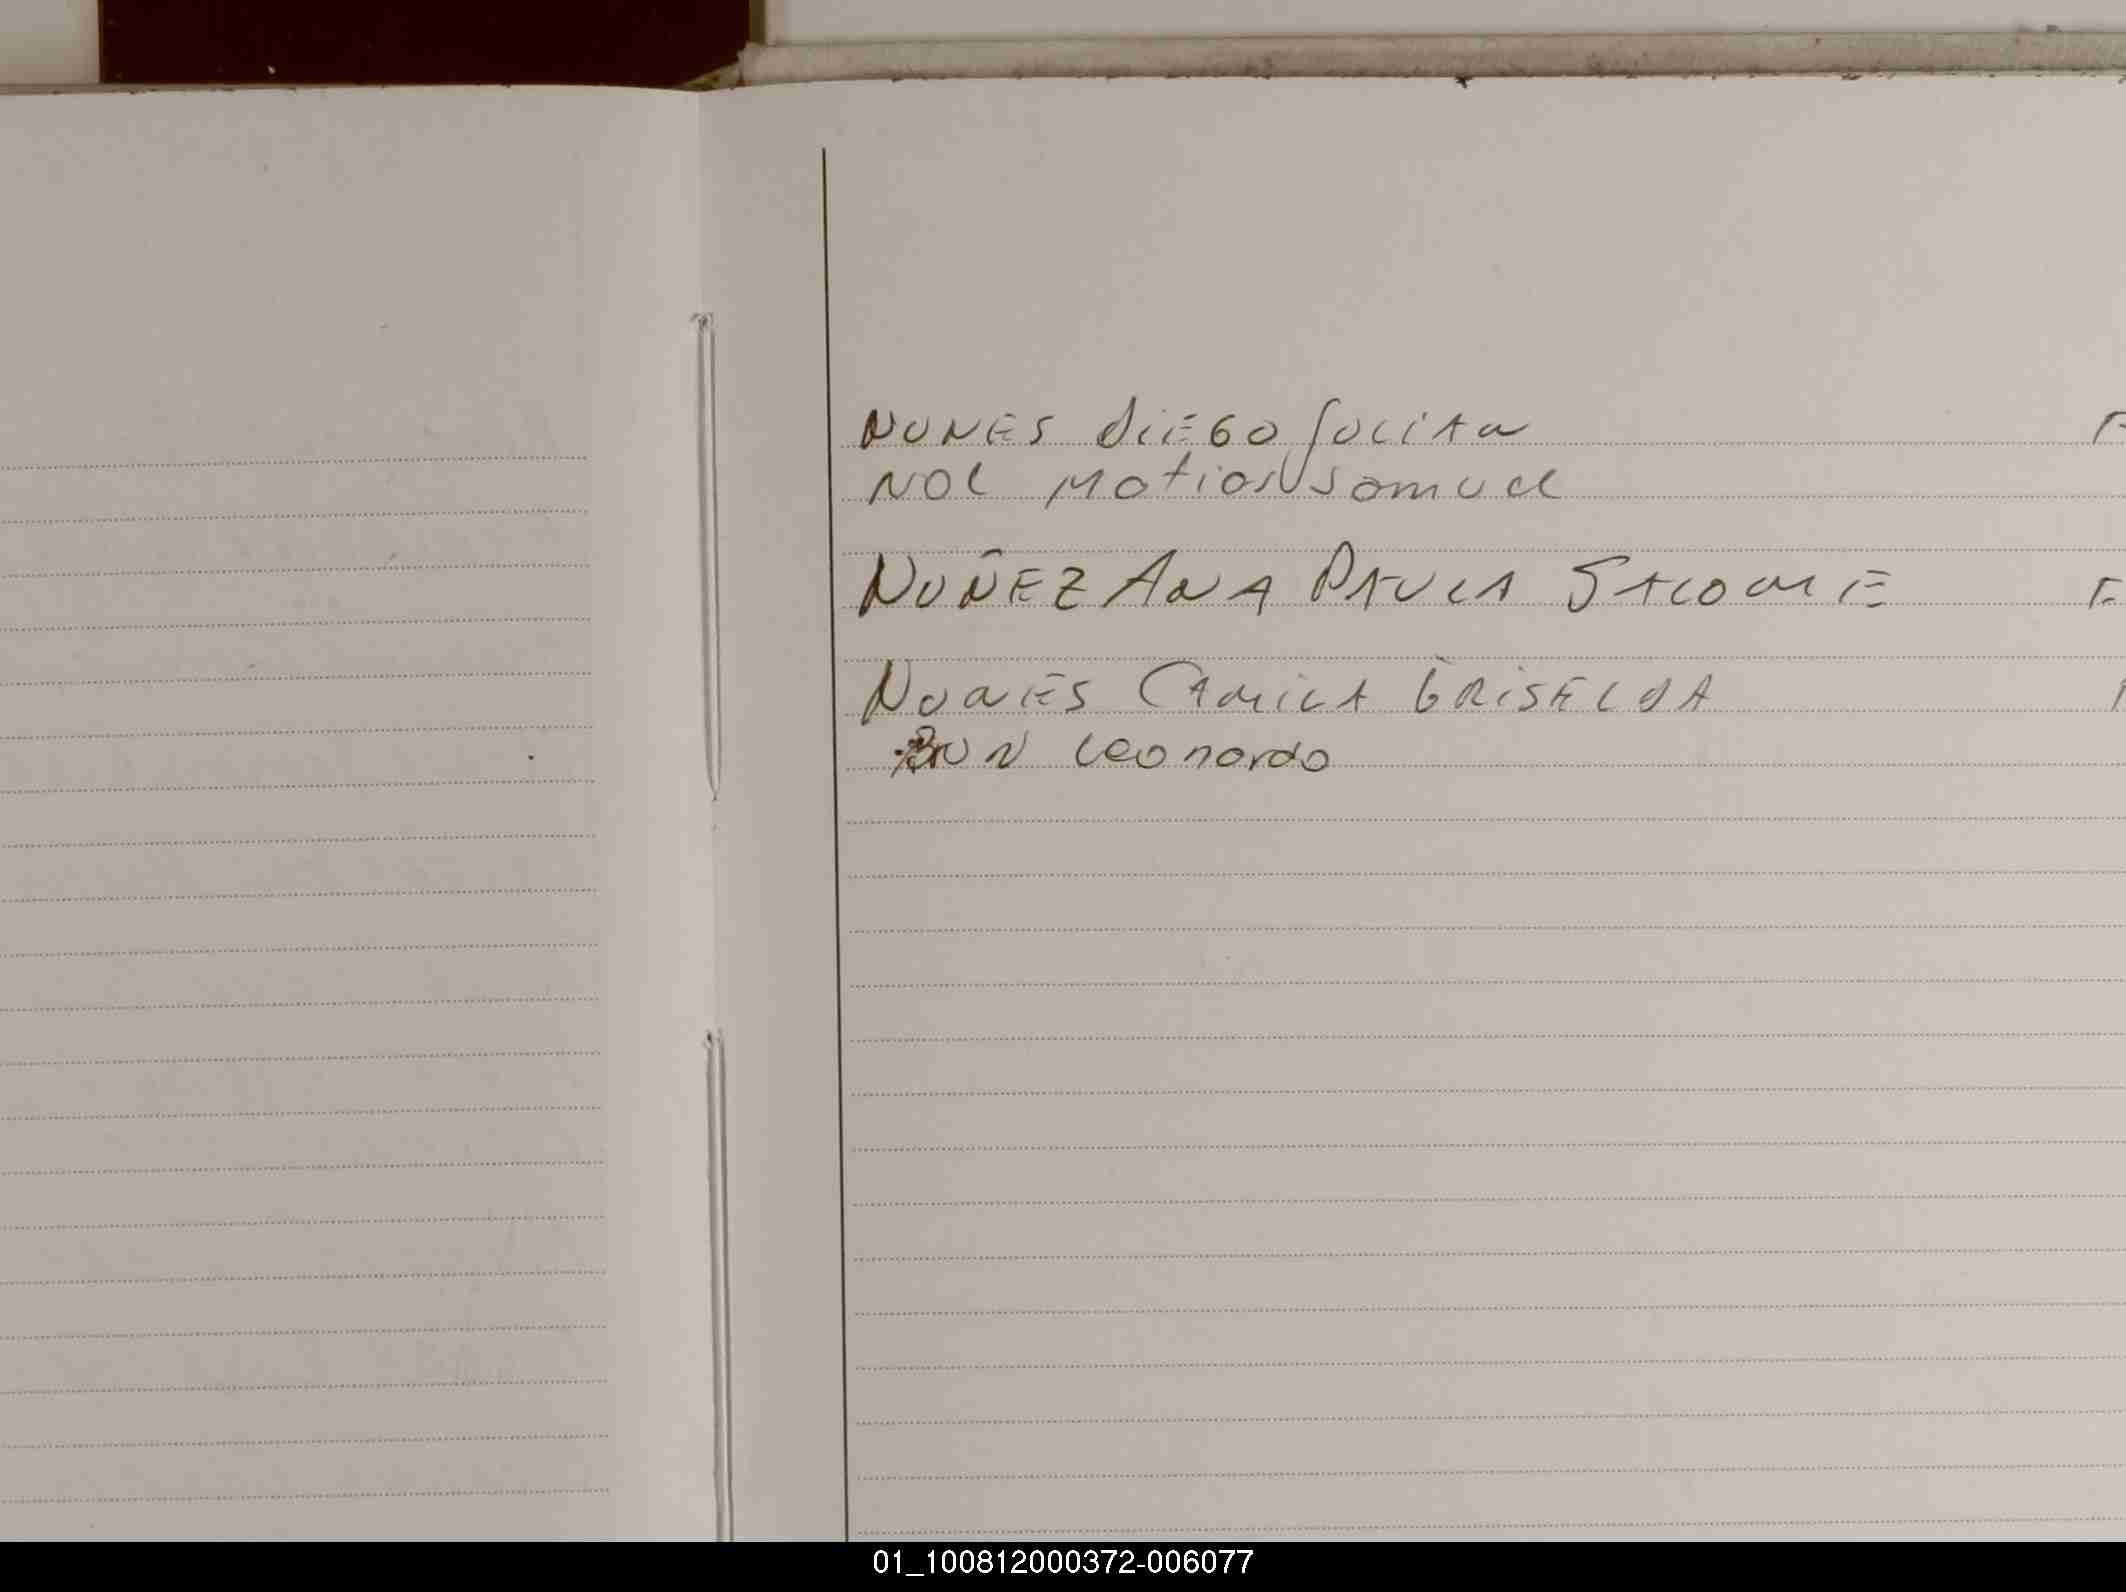 NUNES DIEGO JULIAN
NOL Matias Samuel
NUÑEZ ANA PAULA SALOME
NUNES CAMILA GRISELDA
Leonardo
01_100812000372-006077